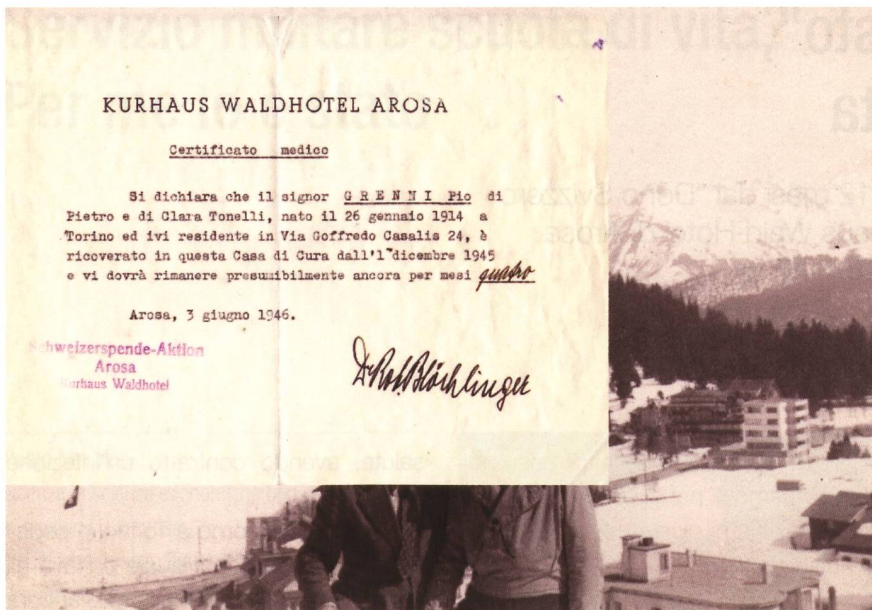 Servizio militare scuola di vita,
Per
KURHAUS WALDHOTEL AROSA
Certificato medico
Si dichiara che il signor GRENNI Pio di
Pietro e di Clara Tonelli, nato il 26 gennaio 1914 a
Torino ed ivi residente in Via Goffredo Casalis 24, è
ricoverato in questa Casa di Cura dall'1°dicembre 1945
e vi dovrà rimanere presumibilmente ancora per mesi quattro
Arosa, 3 giugno 1946.
Schweizerspende-Aktion
Arosa
Kurhaus Waldhotel
Dr Rob. Blöchlinger
salute, avendo contratto un'infezione